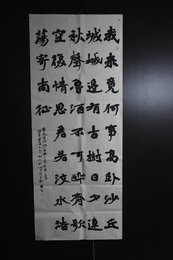 我來竟何事高卧沙丘
城城邊有古樹日夕連
秋聲魯酒不可醉齊歌
空復情思君若汶水浩
蕩寄南征